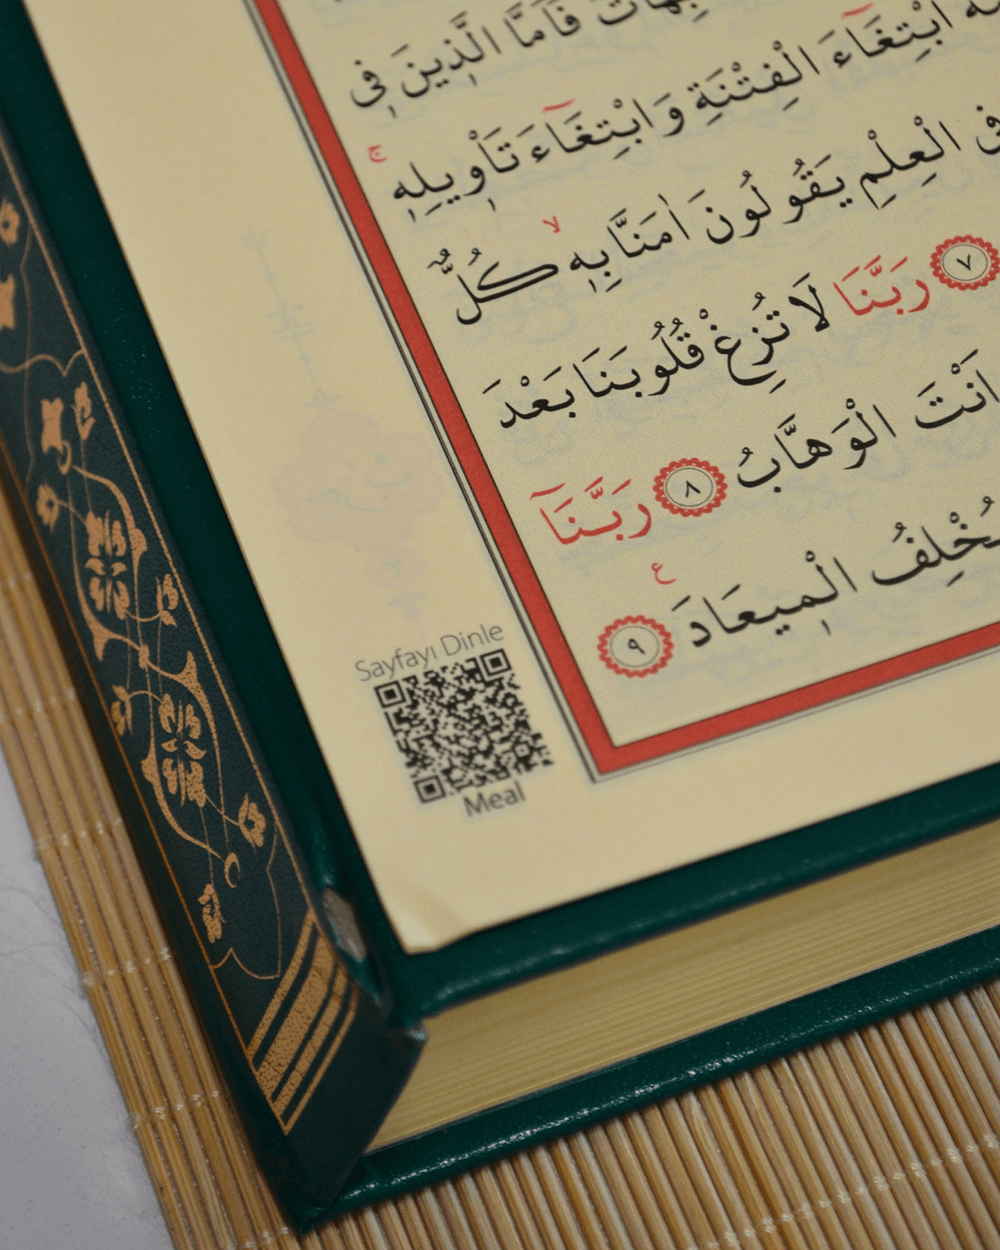 فَاَمَّا الَّذٖينَ فٖى
ابْتِغَٓاءَ الْفِتْنَةِ وَابْتِغَٓاءَ تَاْوٖيلِهٖۚ
الْعِلْمِ يَقُولُونَ اٰمَنَّا بِهٖۙ كُلٌّ
٧ رَبَّنَا لَا تُزِغْ قُلُوبَنَا بَعْدَ
اَنْتَ الْوَهَّابُ ٨ رَبَّنَٓا
ـُخْلِفُ الْمٖيعَادَ ٩ ع
Sayfayı Dinle
Meal